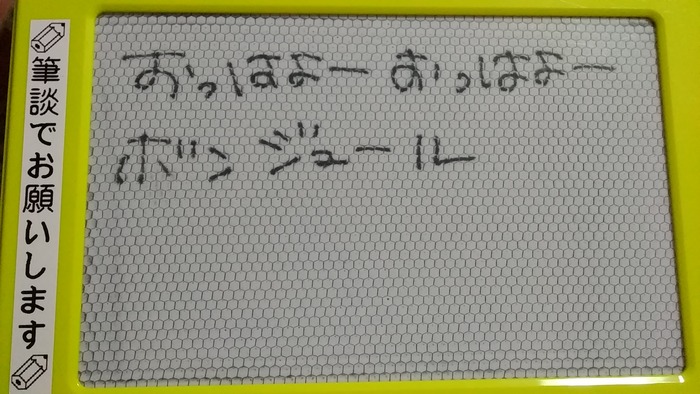 筆談でお願いします
おっはよー おっはよー
ボンジュール